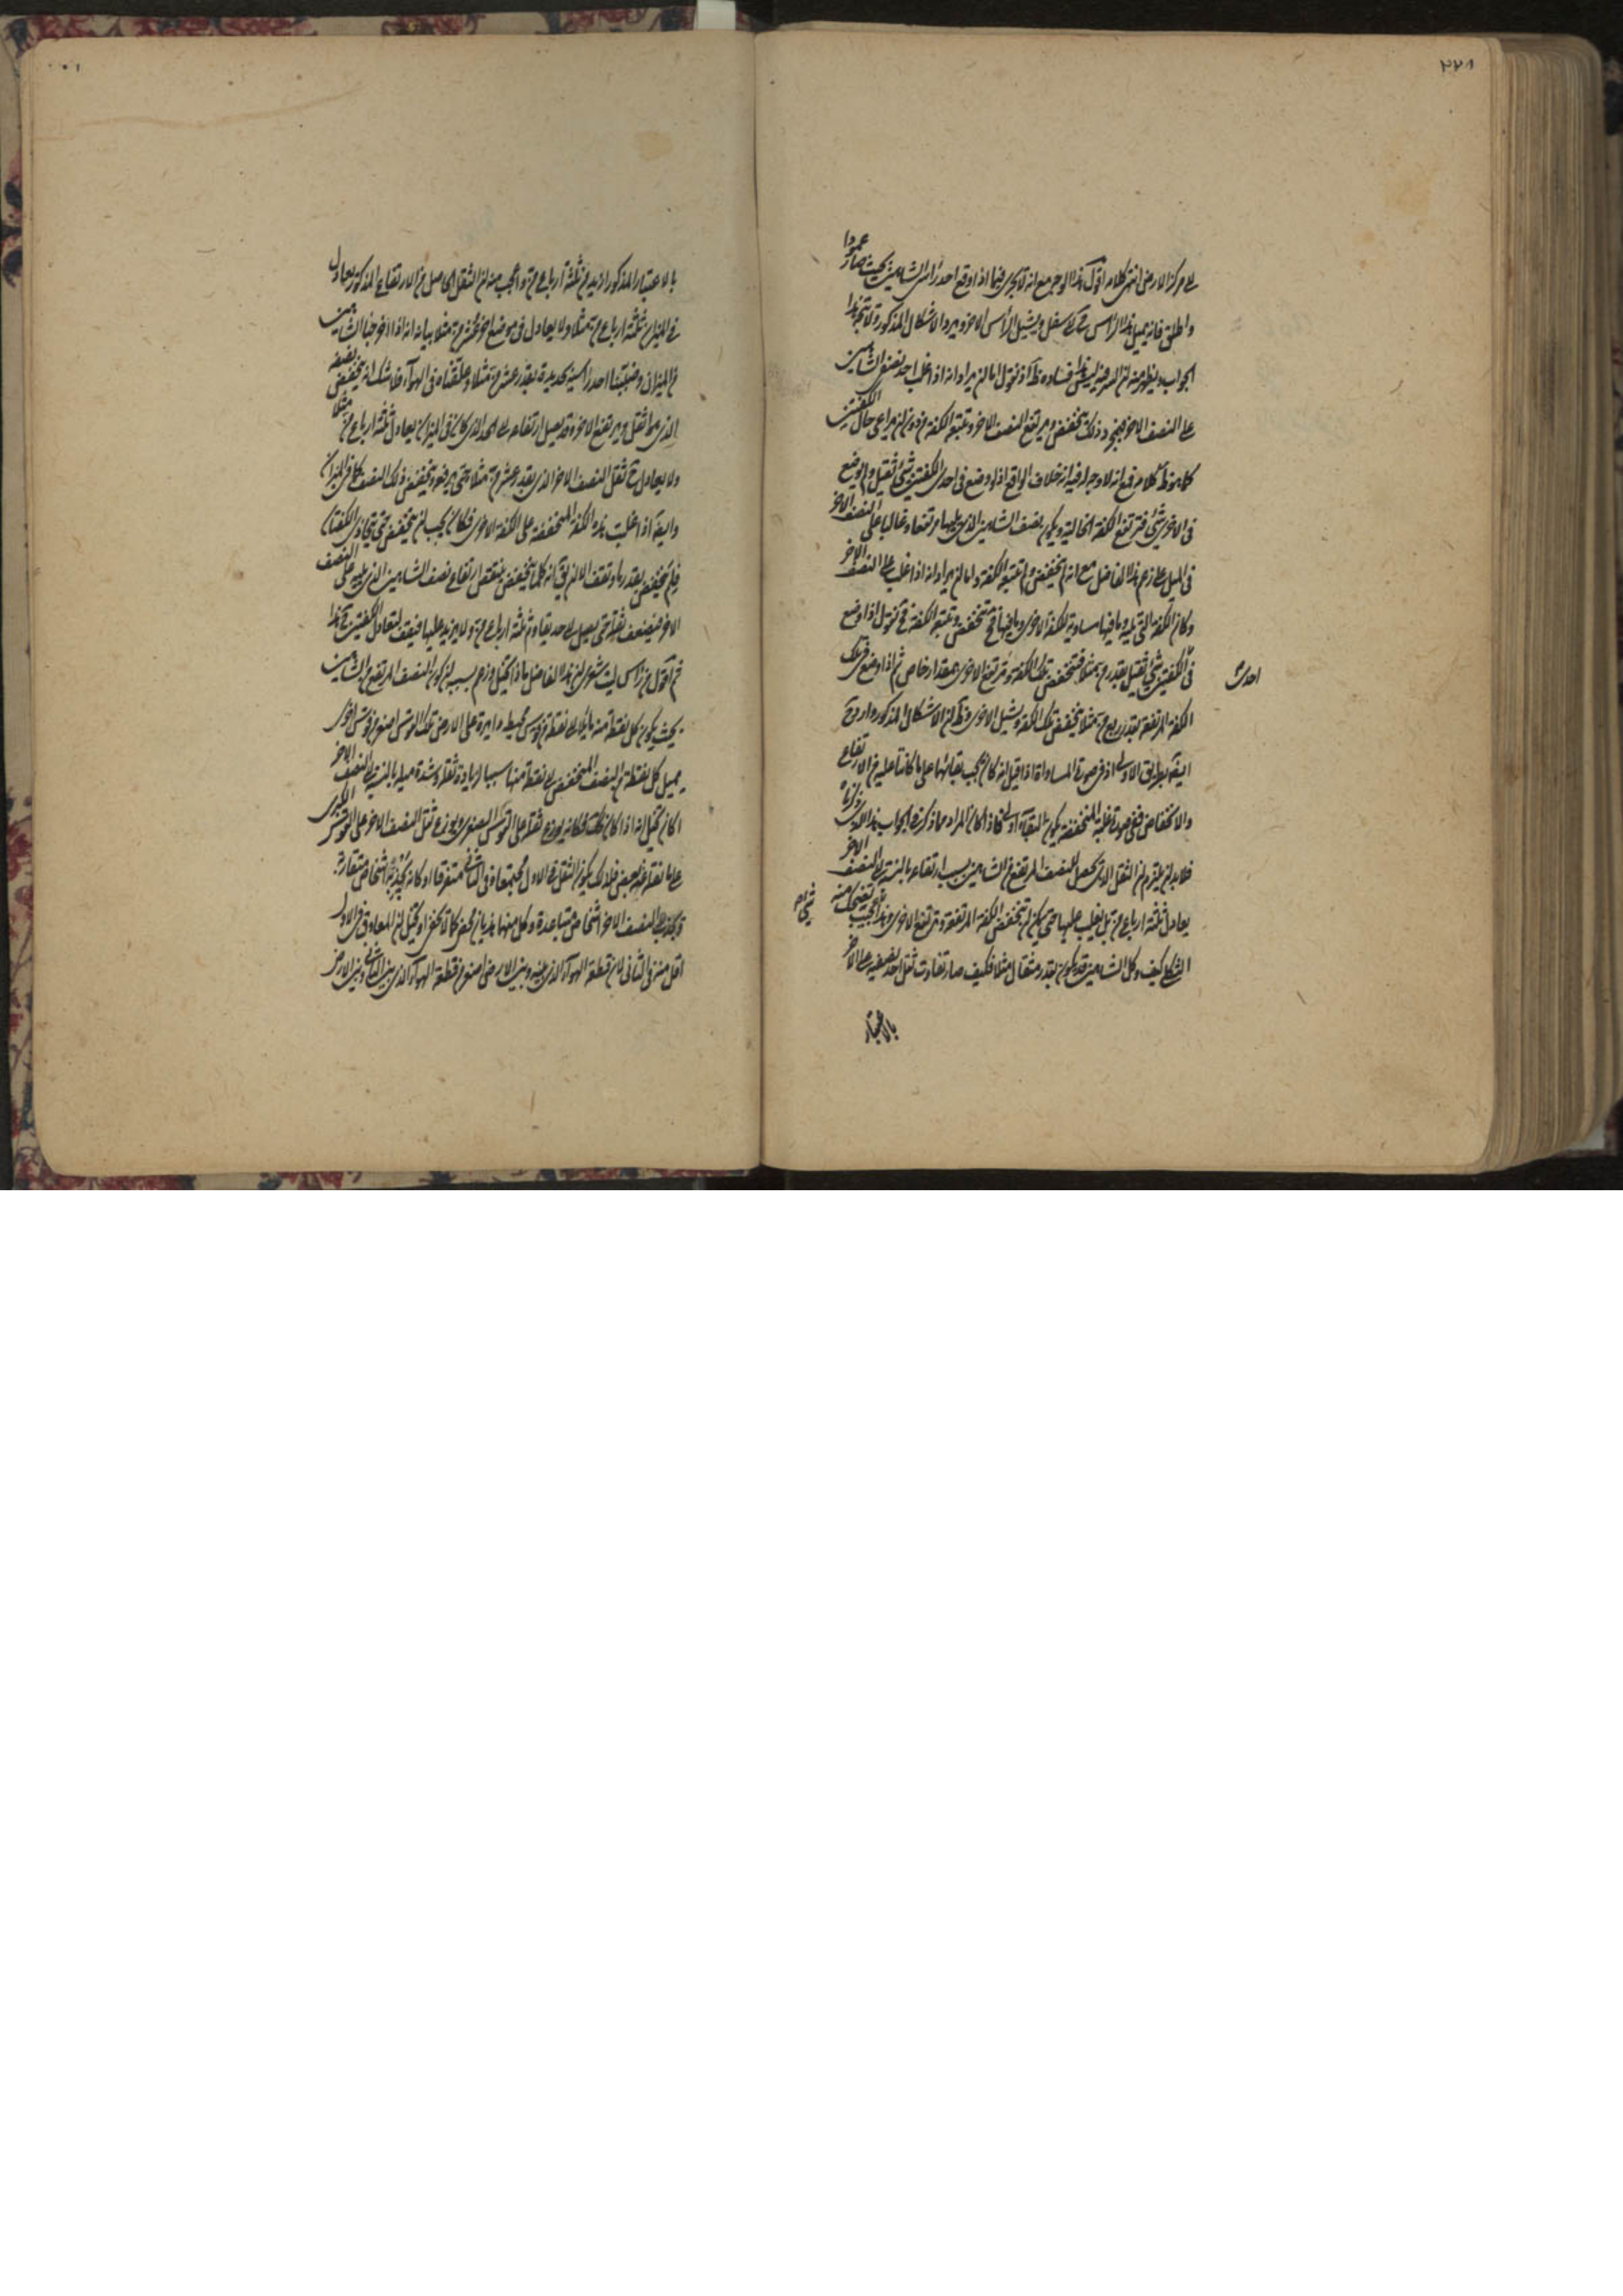 ٢٢١
الى مركز الارض انتهى كلامه اقول هذا الوجه مع انه لا يجرى فيما اذا وقع احد رأس الشاهين بحيث صار عمودا
واطلق فانه يميل هذا الرأس الى سفل ويشيل الرأس الاخر ويرد الاشكال المذكور ولا يتجه هذا
الجواب ويظهر منه ان السر فيه ليس فساده ظاهر اذ نقول اما ان يراد انه اذا غلب احد نصفى الشاهين
على النصف الاخر فبمجرد ذلك ينخفض ويرتفع النصف الاخر وتتبعه الكفة من دون ان يراعى حال الكفتين
كما هو ظ كلامه فمع انه لا وجه له فيه انه خلاف الواقع اذ لو وضع فى احدى الكفتين شئ ثقيل ولم يوضع
فى الاخرى شئ فترتفع الكفة الخالية ويكون نصف الشاهين الذى يليها مرتفعا وغالبا على النصف الاخر
فى الميل على زعم هذا الفاضل مع انه لم ينخفض ولم تتبعه الكفة واما ان يراد انه اذا غلب على النصف الاخر
وكان الكفة التى تليه وما فيها مساوية للكفة الاخرى وما فيها فح تنخفض وتتبعه الكفة فح نقول اذا وضع
فى احدى الكفتين شئ ثقيل بقدر مثلا فتنخفض تلك الكفة وترتفع الاخرى بمقدار خاص ثم اذا وضع فى تلك
الكفة المرتفعة بقدر ربع مثلا ينخفض تلك الكفة ويشيل الاخرى وظ ان الاشكال المذكور وارد ح
ايضا بطريق الاولى اذ فى صورة المساواة اذا قيل انه كان يجب بقائهما على ما كانتا عليه من الارتفاع
والانخفاض ففى صورة غلبة المنخفضة يكون البقاء اولى فاذا كان المراد مما ذكره فى الجواب
فلا بد ان يلتزم ان الثقل الذى يحصل للنصف المرتفع من الشاهين بسبب ارتفاعه بالنسبة الى النصف الاخر
يعادل ثلثة ارباع من بل يغلب عليها حتى يمكن ان تنخفض الكفة المرتفعة وترتفع الاخرى وهذا عجيب
الشكل كيف وكل الشاهين قد يكون بقدر مثقال مثلا فكيف صار تفاوت ثقل احد نصفيه على الاخر
بالاعتبار
بالاعتبار المذكور ازيد من ثلثة ارباع من واعجب منه ان الثقل الحاصل من الارتفاع المذكور يعادل
فى الميزان ثلثة ارباع من مثلا ولا يعادل فى موضع اخر عشر من مثلا بيانه انه اذا اخرجنا الشاهين
من الميزان وضببنا احد رأسيه بحديدة بقدر عشر من مثلا وعلقناه فى الهواء فلا شك انه ينخفض نصفه
الذى هو اثقل ويرتفع الاخر وقد يصل ارتفاعه الى الحد الذى كان فى الميزان يعادل ثلثة ارباع من مثلا
ولا يعادل ح ثقل النصف الاخر الذى بقدر عشر من مثلا حتى يرفعه وينخفض ذلك النصف كما فى الميزان
وايضا اذا غلبت هذه الكفة المنخفضة على الكفة الاخرى فكان يجب ان ينخفض حتى يتحاذى الكفتان
فلم ينخفض بقدر ما وتقف الا ان يق انه كلما ينخفض ينتقص ارتفاع نصف الشاهين الذى يليه على النصف
الاخر فيضعف ثقله حتى يصل الى حد يقاوم ثلثة ارباع من ولا يزيد عليها فيقف لتعادل الكفتين ح هذا
ثم اقول من رأس ليت شعرى ان هذا الفاضل ماذا تخيل وزعم بسببه ان كون النصف المرتفع من الشاهين
بحيث يكون كل نقطة منه مايلا الى نقطة من قوس محيط دايرة على الارض تلك القوس اصغر من قوس اخرى
يميل كل نقطة من النصف المنخفض الى نقطة منها سبب لزيادة ثقله وشدة ميله بالنسبة الى النصف الاخر
اكان تخيل انه اذا كان كذلك فكانه يوزع ثقله على القوس الصغرى ويوزع ثقل النصف الاخر على القوس الكبرى
على ما نقله عنه بعض فلذلك يكون الثقل فى الاول مجتمعا وفى الثانى متفرقا او كانه يجذبه اشخاص متقاربة
ويجذب النصف الاخر اشخاص متباعدة وكل منهما هذيان محض كما لا يخفى او تخيل ان المعاوق فى الاول
اقل منه فى الثانى لان قطعة الهواء الذى بينه وبين الارض اصغر من قطعة الهواء الذى بين الثانى وبين الارض